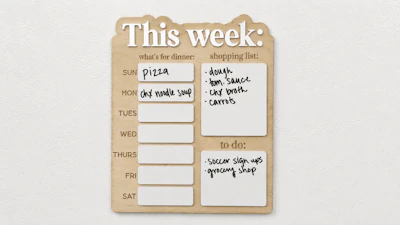 This week:
what's for dinner:
SUN pizza
MON chx noodle soup
TUES
WED
THURS
FRI
SAT
shopping list:
· dough
· tom sauce
· chx broth
· carrots
to do:
· soccer sign ups
· grocery shop